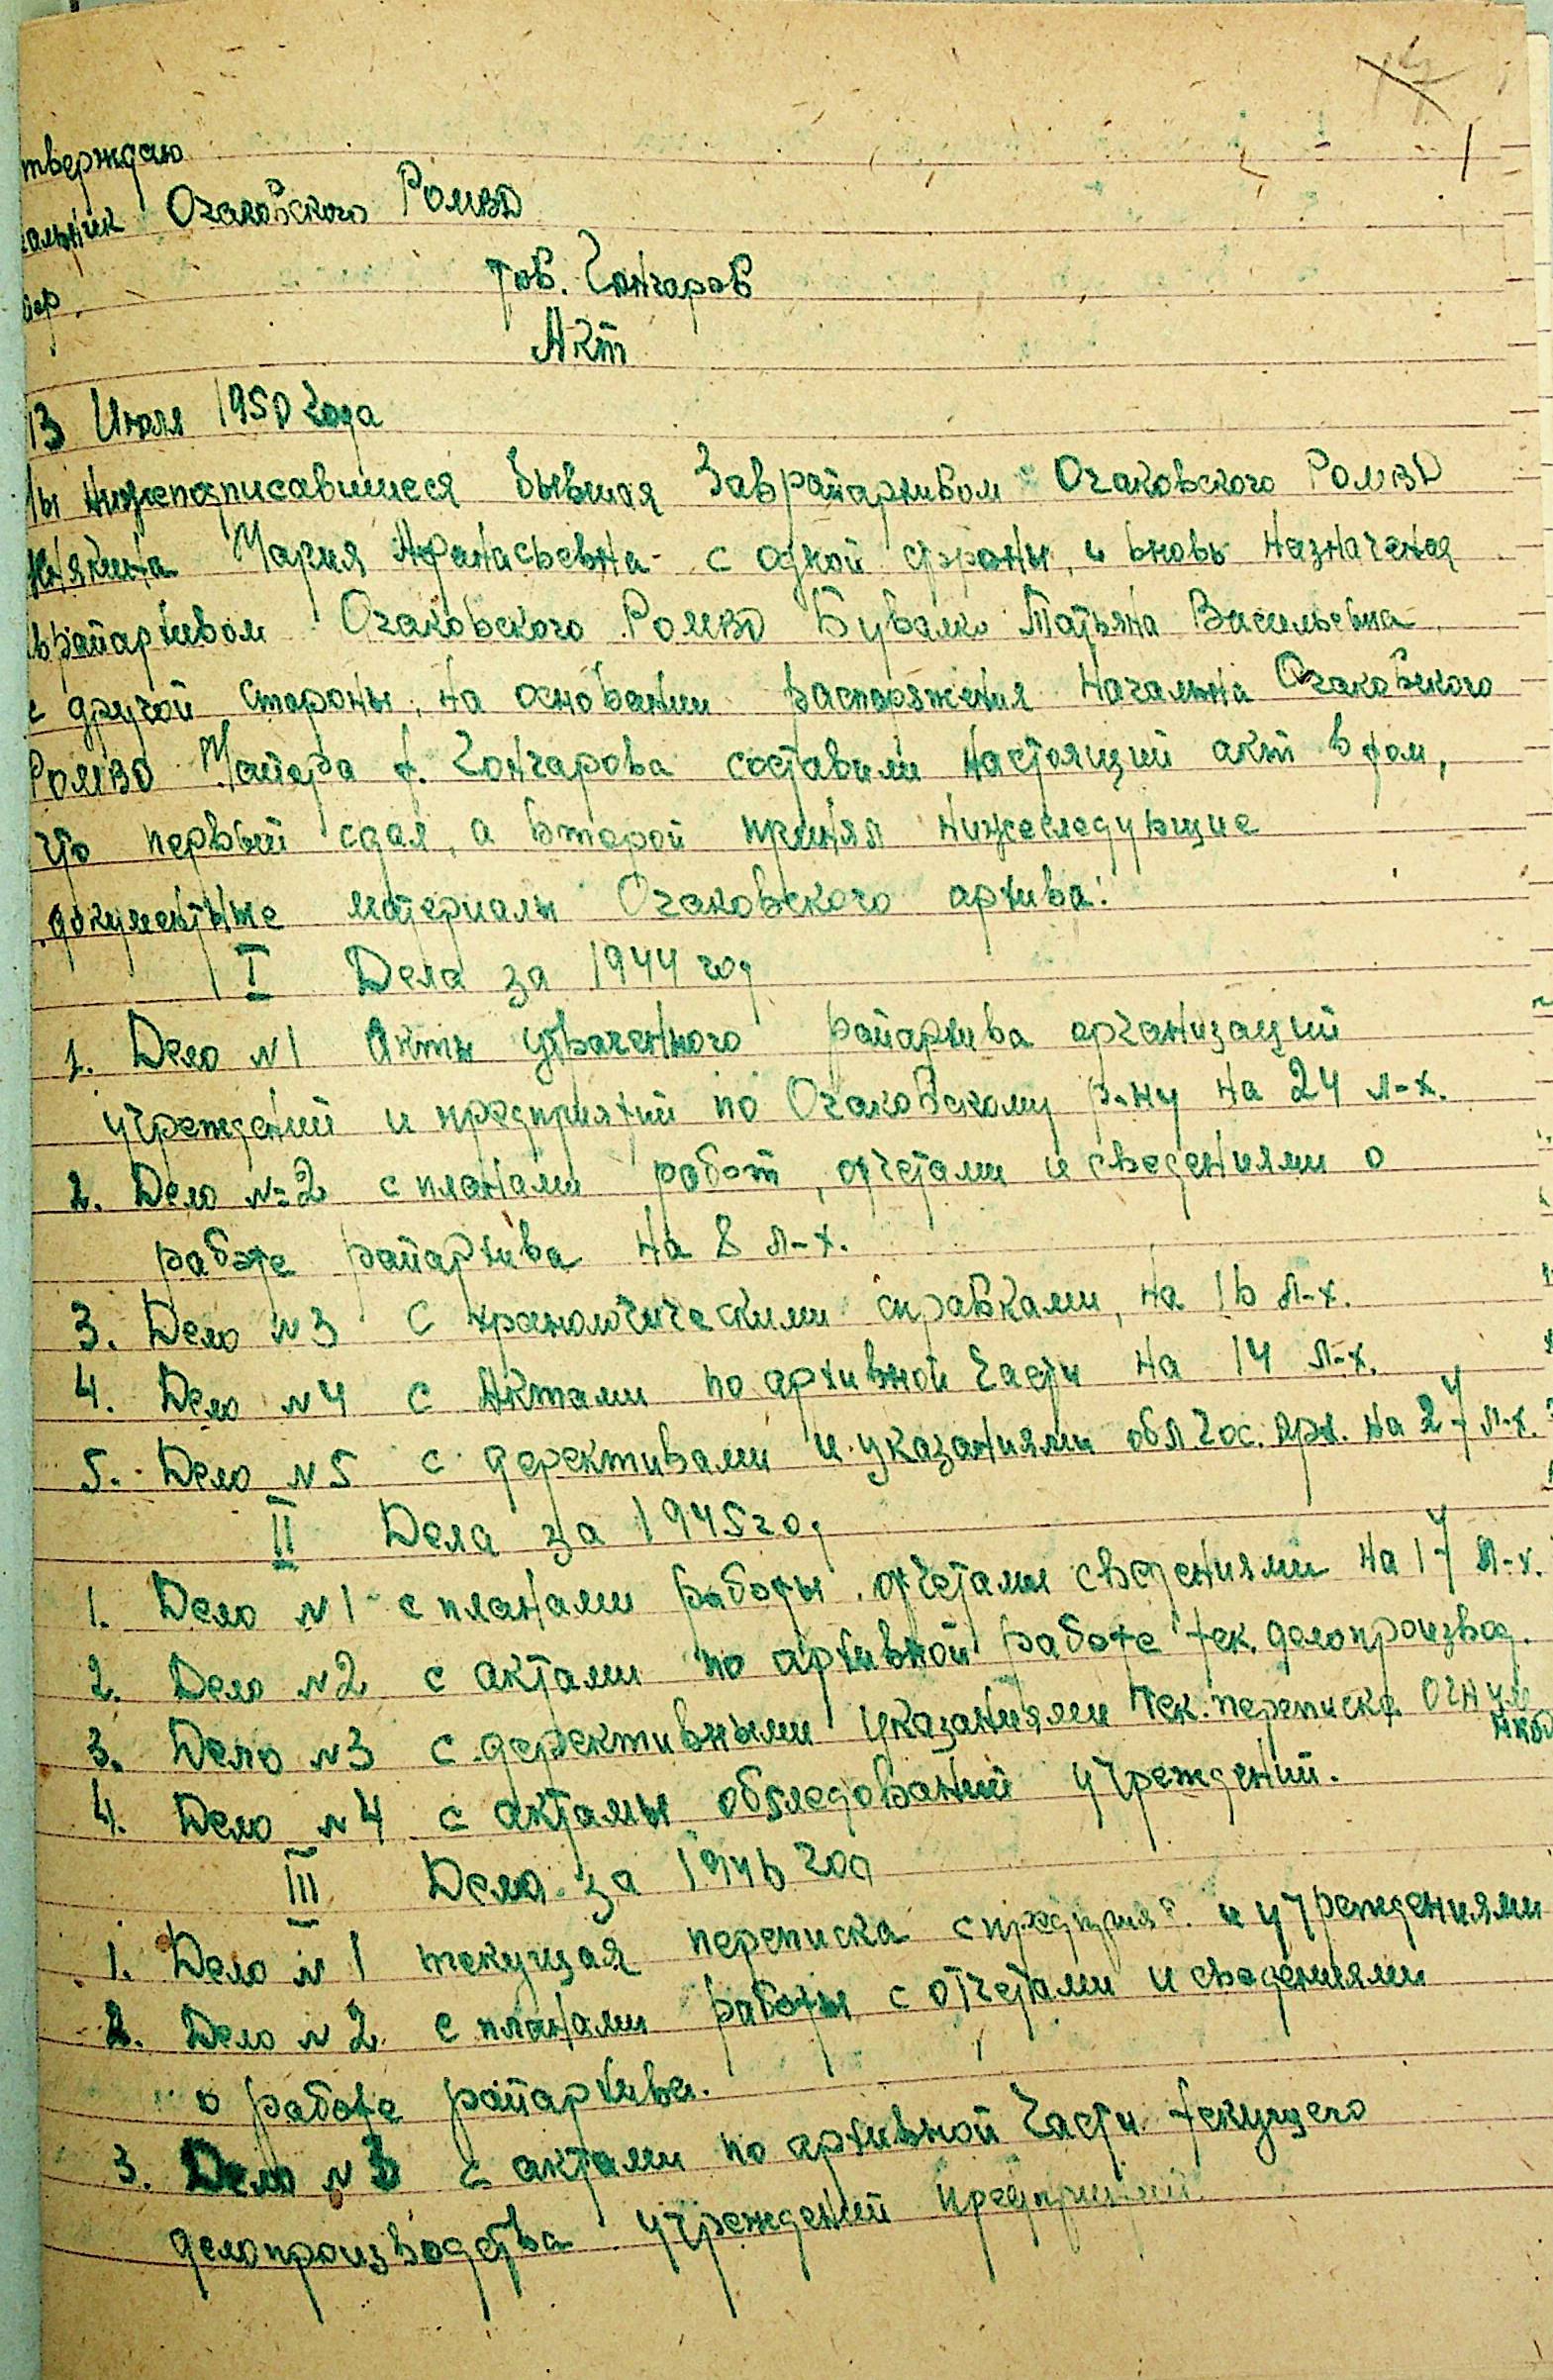 1
тверждаю
альник Очаковского РОМВД
тов. Гончаров
Акт
13 Июля 1950 года
ы нижеподписавшиеся бывшая Заврайархивом Очаковского РОМВД
Мария Афанасьевна с одной стороны, и вновь назначеная
врайархивом Очаковского РОМВД Бувалко Татьяна Васильевна
с другой стороны, на основании распоряжения Начальна Очаковского
РОМВД Майора т. Гончарова составили настоящий акт в том,
что первый сдал, а второй принял нижеследующие
документные материалы Очаковского архива:
I Дела за 1944 год
1. Дело №1 Акты утраченного райархива организаций
учреждений и предприятий по Очаковскому р-ну на 24 л-х.
2. Дело №2 с планами работ, отчетами и сведениями о
работе райархива на 8 л-х.
3. Дело №3 С хронологическими справками, на 16 л-х.
4. Дело №4 с Актами по архивной части на 14 л-х.
5. Дело №5 с дерективами и указаниями обл гос. арх. на 27 л-х.
II Дела за 1945 год
1. Дело №1 с планами работы отчетами сведениями на 17 л-х.
2. Дело №2 с актами по архивной работе тек. делопроизвод.
3. Дело №3 с дерективными указаниями тек. переписка
4. Дело №4 с актамы обследований учреждений.
III Дела за 1946 год
1. Дело №1 текущая переписка с предприят. и учреждениями
2. Дело №2 с планами работы с отчетами и сведениями
о работе райархива.
3. Дело №3 с актами по архивной части текущего
делопроизводства учреждений предприятий.